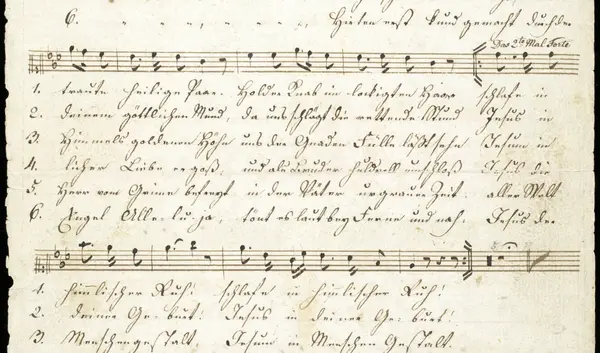 6. " " " " " " Hirten erst kund gemacht durch der
Das 2te Mal Forte
1. traute heilige Paar. Holder Knab im lockigten Haar schlafe in
2. deinem göttlichen Mund, da uns schlägt die rettende Stund Jesus in
3. Himmels goldenen Höhn uns der Gnaden Fülle läßt sehn Jesum in
4. licher Liebe ergoß, und als Bruder huldvoll umschloß Jesus die
5. Herr vom Grimme befreyt in der Väter urgrauer Zeit aller Welt
6. Engel Alle-lu-ja, tönt es laut bey Ferne und nah: Jesus der
1. himmlischer Ruh! schlafe in himlischer Ruh!
2. deiner Ge-burt! Jesus in deiner Ge-burt!
3. Menschengestalt. Jesum in Menschen Gestalt.